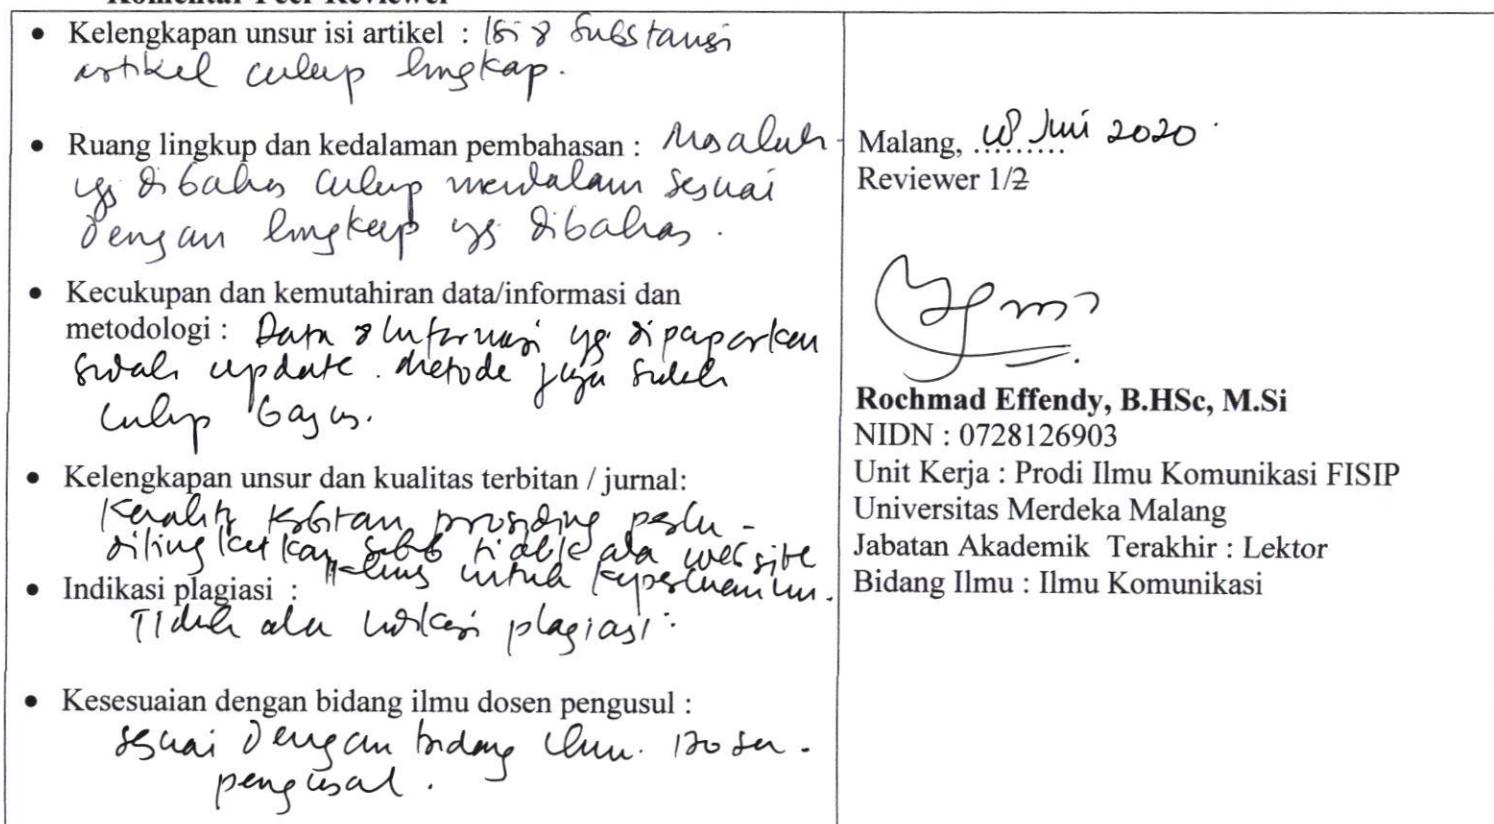 Komentar Peer Reviewer
• Kelengkapan unsur isi artikel : Isi & Substansi
artikel cukup lengkap.
• Ruang lingkup dan kedalaman pembahasan : Masalah
yg dibahas cukup mendalam sesuai
dengan lingkup yg dibahas.
• Kecukupan dan kemutahiran data/informasi dan
metodologi : Data & Informasi yg dipaparkan
sudah update. Metode juga sudah
cukup bagus.
• Kelengkapan unsur dan kualitas terbitan / jurnal:
Kualitas terbitan prosiding perlu
ditingkatkan sebab tidak ada website
untuk
• Indikasi plagiasi :
Tidak ada indikasi plagiasi.
• Kesesuaian dengan bidang ilmu dosen pengusul :
sesuai dengan bidang ilmu Dosen
pengusul.
Malang, Juni 2020
Reviewer 1/2
Rochmad Effendy, B.HSc, M.Si
NIDN : 0728126903
Unit Kerja : Prodi Ilmu Komunikasi FISIP
Universitas Merdeka Malang
Jabatan Akademik Terakhir : Lektor
Bidang Ilmu : Ilmu Komunikasi